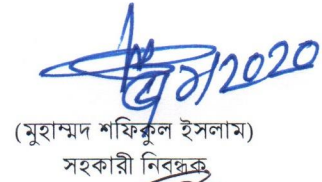 2020
(মুহাম্মদ শফিকুল ইসলাম)
সহকারী নিবন্ধক